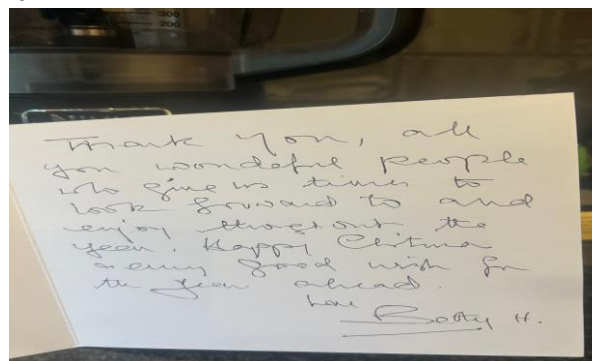 300
200
Thank you, all
you wonderful people
who give us times to
look forward to and
enjoy throughout the
year. Happy Christmas
every good wish for
the year ahead.
Love
Betty H.